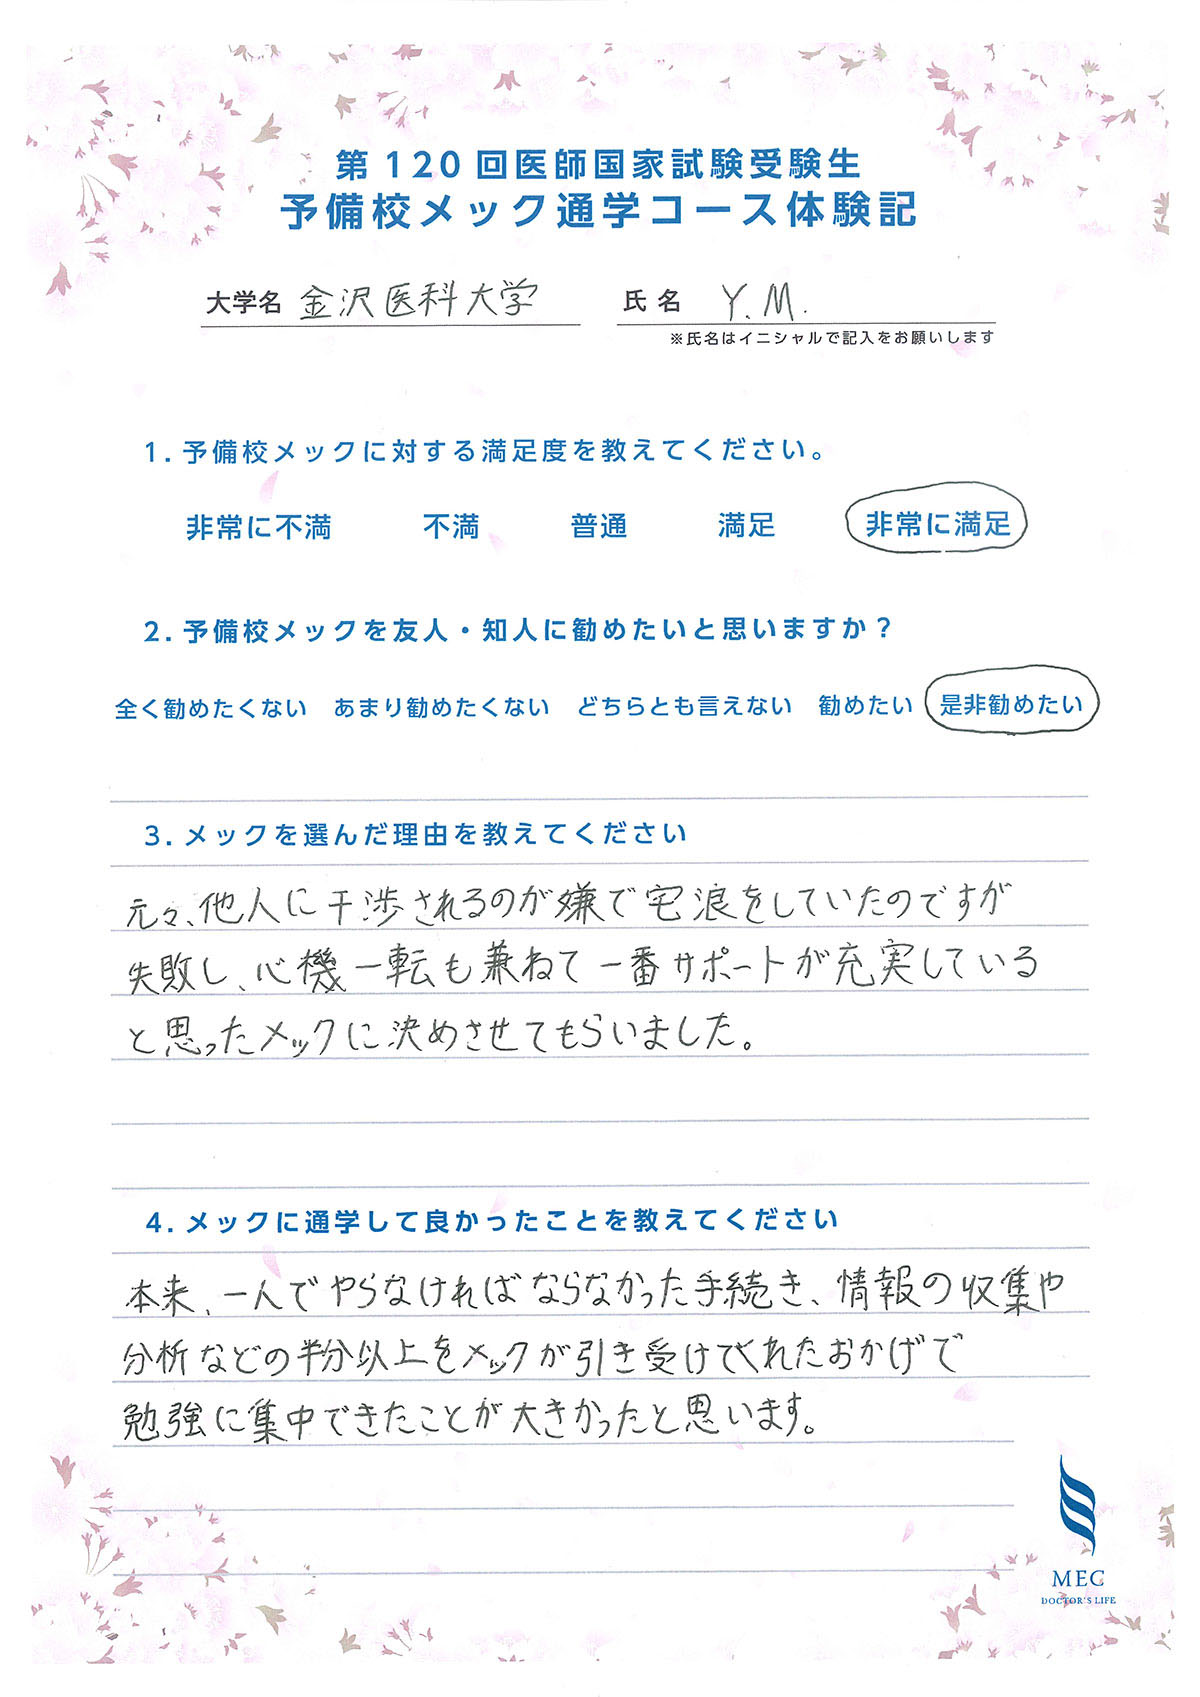 第120回医師国家試験受験生
予備校メック通学コース体験記
大学名 金沢医科大学 氏名 Y.M.
※氏名はイニシャルで記入をお願いします
1.予備校メックに対する満足度を教えてください。
非常に不満 不満 普通 満足 非常に満足
2.予備校メックを友人・知人に勧めたいと思いますか？
全く勧めたくない あまり勧めたくない どちらとも言えない 勧めたい 是非勧めたい
3.メックを選んだ理由を教えてください
元々、他人に干渉されるのが嫌で宅浪をしていたのですが
失敗し、心機一転も兼ねて一番サポートが充実している
と思ったメックに決めさせてもらいました。
4.メックに通学して良かったことを教えてください
本来、一人でやらなければならなかった手続き、情報の収集や
分析などの半分以上をメックが引き受けてくれたおかげで
勉強に集中できたことが大きかったと思います。
MEC
DOCTOR'S LIFE